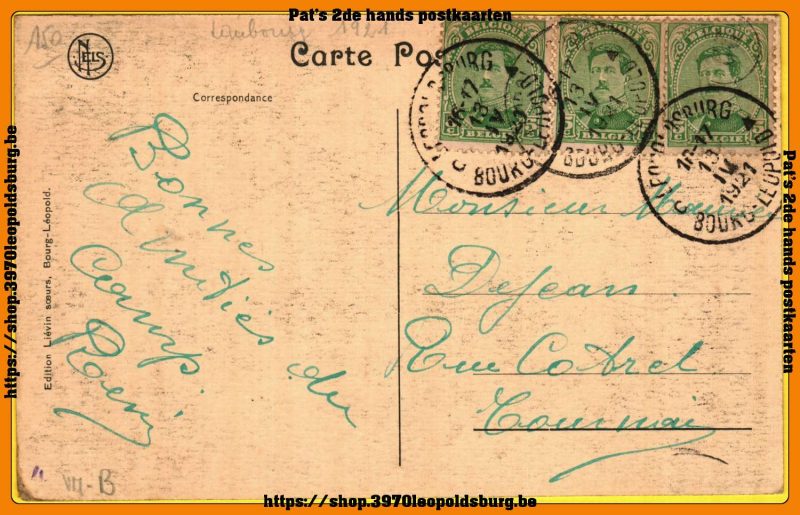 Pat's 2de hands postkaarten
150
1921
NELS
Carte Pos
Correspondance
BELGIQUE
BELGIË
BELGIQUE
BELGIË
BELGIQUE
BELGIË
LEOPOLDSBURG
16-17
13
IV
1921
BOURG-LEOPOLD
16-17
13
IV
1921
BOURG-LEOPOLD
LEOPOLDSBURG
16-17
13
IV
1921
BOURG-LEOPOLD
Bonnes
Amitiés du
camp.
Monsieur
Dejean
Rue Cotrel
Tournai
Edition Liévin sœurs, Bourg-Léopold.
VII-B
https://shop.3970leopoldsburg.be
Pat's 2de hands postkaarten
https://shop.3970leopoldsburg.be